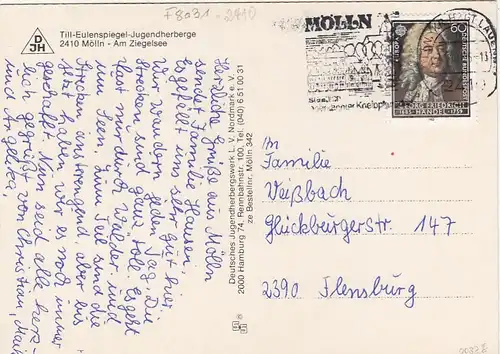 F8031-2410
DJH
Till-Eulenspiegel-Jugendherberge
2410 Mölln - Am Ziegelsee
Herzliche Grüße aus Mölln
sendet Familie Hansen.
Es gefällt uns sehr gut hier.
Wir wandern jeden Tag. Die
Strecken sind ganz toll. Es geht
laut nur durch Wälder und
um Seen. Zum Teil sind die
Strecken anstrengend aber bis
jetzt haben wir es noch immer
geschafft. Nun seid alle herz-
lich gegrüßt von Christian, Maik
und Angelika.
Deutsches Jugendherbergswerk L. V. Nordmark e. V.
2000 Hamburg 74, Rennbahnstr. 100, Tel. (040) 6 51 00 31
ze Bestellnr. Mölln 342
MÖLLN
Kneipp
EUROPA
60
DEUTSCHE BUNDESPOST
GEORG FRIEDRICH
1685 HÄNDEL 1759
24
In
Familie
Veißbach
Glückburgerstr. 147
2390 Flensburg